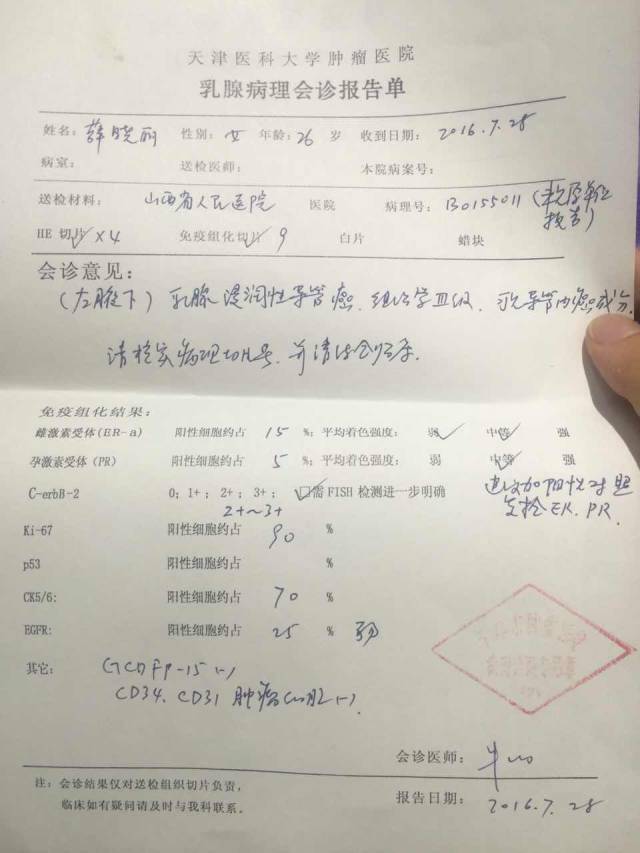 天津医科大学肿瘤医院
乳腺病理会诊报告单
姓名：薛晓丽 性别：女 年龄：26 岁 收到日期：2016.7.28
病室： 送检医师： 本院病案号：
送检材料：山西省人民医院 医院 病理号：B0155011（未见原单位报告）
HE 切片✓×4 免疫组化切片✓9 白片 蜡块
会诊意见：
（左腋下）乳腺浸润性导管癌，组织学Ⅲ级，可见导管内癌成分。
请核实病理切片号，并请结合临床。
免疫组化结果：
雌激素受体(ER-a) 阳性细胞约占 15 %；平均着色强度： 弱✓ 中等✓ 强
孕激素受体（PR） 阳性细胞约占 5 %；平均着色强度： 弱 中等✓ 强
C-erbB-2 0；1+；2+；3+；☑需 FISH 检测进一步明确 建议加阳性对照
2+～3+ 复检ER、PR.
Ki-67 阳性细胞约占 90 %
p53 阳性细胞约占 %
CK5/6: 阳性细胞约占 70 %
EGFR: 阳性细胞约占 25 % 弱
其它： GCDFP-15(-)
CD34、CD31 肿瘤细胞(-)
会诊医师：
注：会诊结果仅对送检组织切片负责，
临床如有疑问请及时与我科联系。 报告日期：2016.7.28